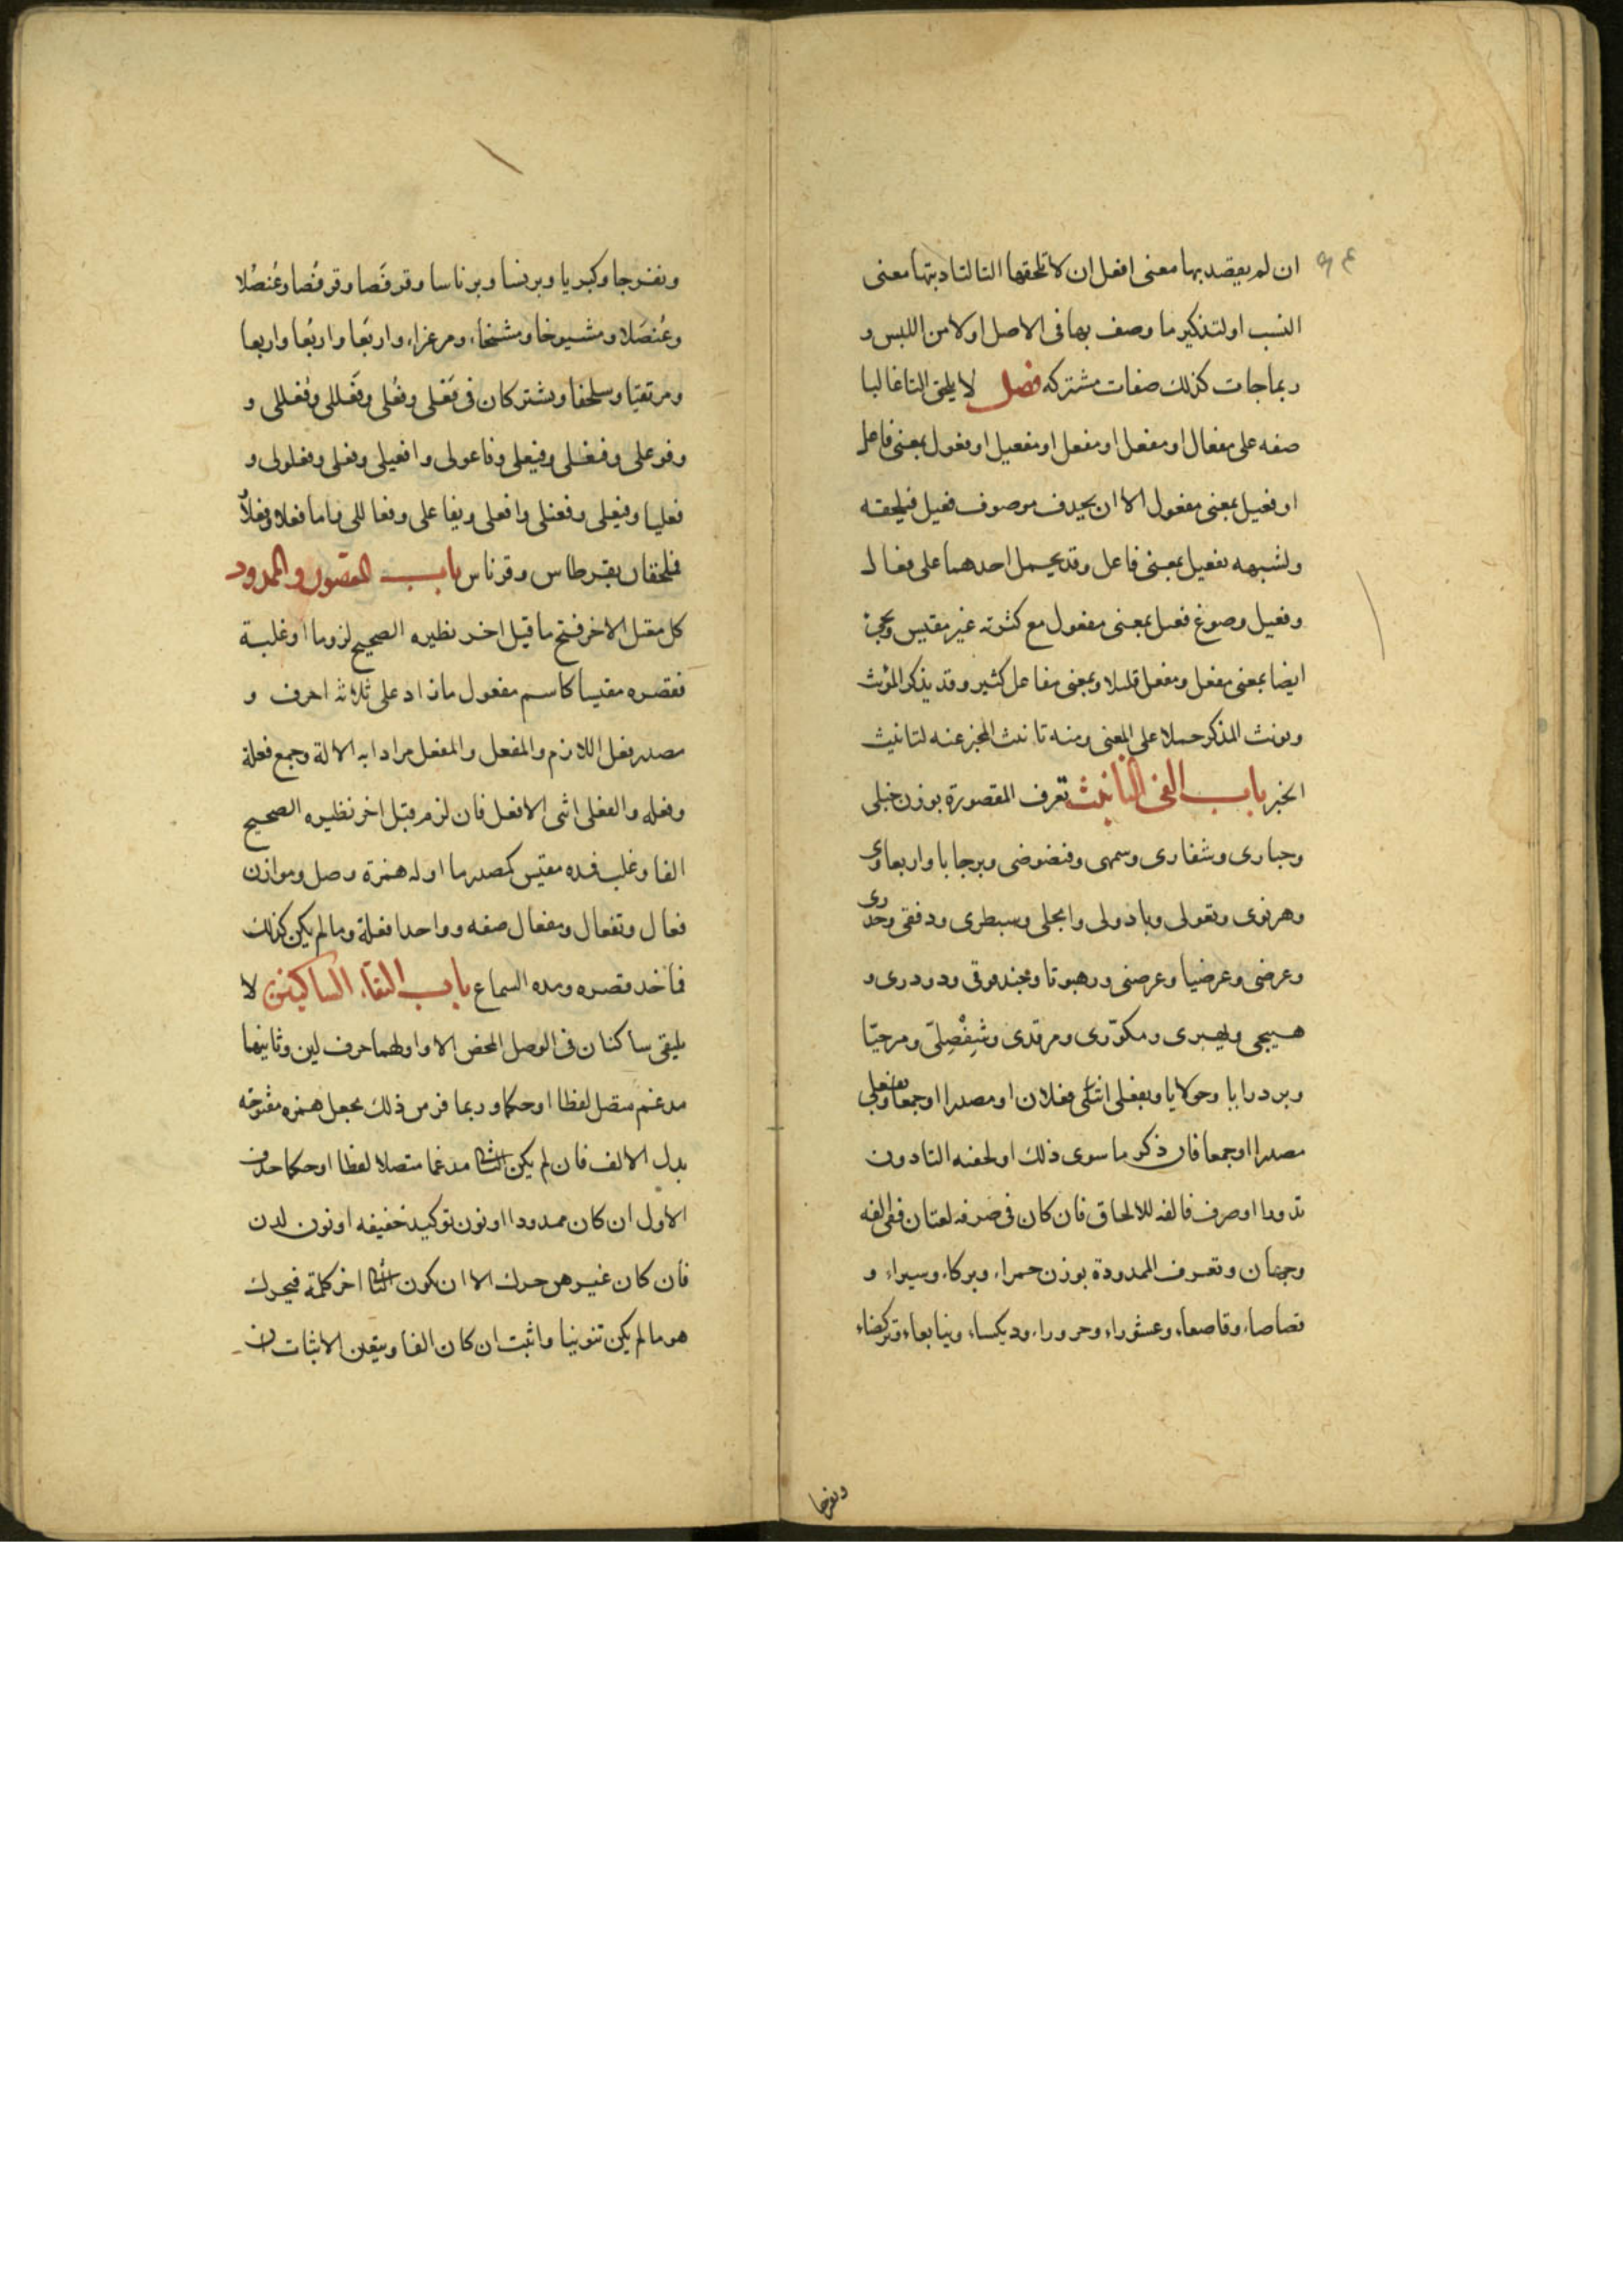 ان لم يقصد بها معنى افعل ان لا تلحقها التا لتاديتها معنى
النسب اولتذكير ما وصف بها فى الاصل اولا من اللبس و
ربما جات كذلك صفات مشتركه فصل لا يلحق التا غالبا
صفه على مفعال او مفعل او مفعل او مفعيل او فعول بمعنى فاعل
او فعيل بمعنى مفعول الا ان يحدف موصوف فعيل فيلحقه
ولشبهه بفعيل بمعنى فاعل وقد يحمل احدهما على فعال
وفعيل وصوغ فعيل بمعنى مفعول مع كثرته غير مقيس ويجئ
ايضا بمعنى مفعل ومفعل قليلا وبمعنى مفاعل كثير وقد يذكر المؤنث
ويونث المذكر حملا على المعنى ومنه تانيث المخبر عنه لتانيث
الخبر باب الفى التانيث تعرف المقصورة بوزن حبلى
وحبارى وشقارى وسمهى وفيضوضى وبرحايا واربعاوى
وهرنوى وقعولى وبادولى وايجلى وسبطرى ودفقى وحذرى
وعرضى وعرضيا وعرضنى ورهبوتا وجندقوقى ودودرى و
هبيخى ويهيرى ومكورى ومرقدى وشِفْصِلّى ومرحيّا
وبردرايا وحولايا وبفعلى انثى فعلان او مصدرا او جمعا وبفعلى
مصدرا او جمعا فان ذكر ما سوى ذلك او لحقته التا دون
ندور او صرف فالفه للالحاق فان كان فى صرفه لغتان ففى الفه
وجهان وتعرف الممدودة بوزن حمراء وبركاء وسيراء و
قصاصاء وقاصعاء وعشوراء وحروراء وديكساء وينابعاء وتركضاء
ونفرجا
ونفرجا وكبريا وبرنسا وبرناسا وقرفَصا وقرفُصا وعُنصُلا
وعُنصَلا ومشيوخا ومشيخاء ومرعزاء واربَعا واربُعا واربعا
ومرتقيا وسلحفا ويشتركان فى فَعَلى وفُعلى وفَعْللى وفِعْللى و
وفوعلى وفعلى وفيعلى وفاعولى وافعيلى وفعلى وفعلولى و
فعليا وفيعلى وفعنلى وافعلى ويفاعلى وفعاللى فاما فعلاء وفعلاء
فملحقان بقرطاس وقرناس باب المقصور والممدود
كل معتل الاخر فتح ما قبل اخر نظيره الصحيح لزوما او غلبة
فقصره مقيسا كاسم مفعول ما زاد على ثلاثة احرف و
مصدر فعل اللازم والمفعل والمفعل مرادا به الالة وجمع فعلة
وفعله والفعلى انثى الافعل فان لزم قبل اخر نظيره الصحيح
الفا وغلب فمده مقيس كمصدر ما اوله همزة وصل وموازن
فعال وتفعال ومفعال صفه وواحد افعلة وما لم يكن كذلك
فماخذ قصره ومده السماع باب التقاء الساكنين لا
يلتقى ساكنان فى الوصل المحض الا واولهما حرف لين وثانيهما
مدغم متصل لفظا او حكما وربما فر من ذلك بجعل همزه مفتوحه
بدل الالف فان لم يكن الثانى مدغما متصلا لفظا او حكما حذف
الاول ان كان ممدودا او نون توكيد خفيفه او نون لدن
فان كان غيرهن حرك الا ان يكون الثانى اخر كلمة فيحرك
هو ما لم يكن تنوينا واثبت ان كان الفا ويتعين الاثبات ان